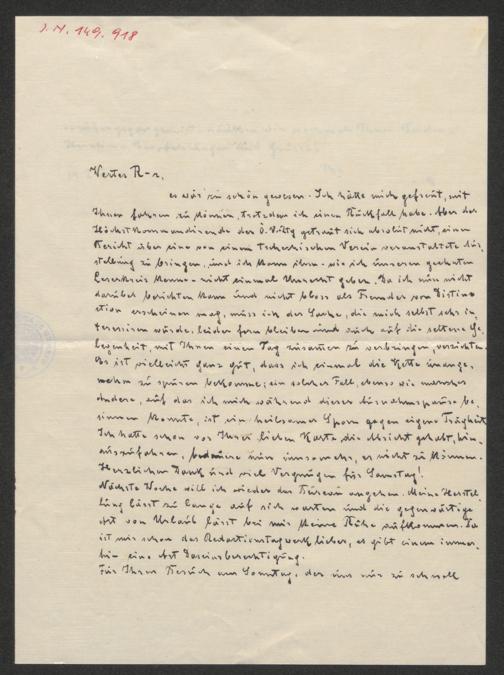 J. N. 149.918
Wertes R-r,
es wär zu schön gewesen. Ich hätte mich gefreut, mit
Ihnen fahren zu können, trotzdem ich einen Rückfall habe. Aber der
Höchstkommandierende der D.Ö.Ztg getraut sich absolut nicht, einen
Bericht über eine von einem tschechischen Verein veranstaltete Aus-
stellung zu bringen, und ich kann ihm - wie ich unseren geehrten
Leserkreis kenne - nicht einmal Unrecht geben. Da ich nun nicht
darüber berichten kann und nicht bloss als Fremder von Distinc-
tion erscheinen mag, muss ich der Sache, die mich selbst sehr in-
teressieren würde, leider fern bleiben und auch auf die seltene Ge-
legenheit, mit Ihnen einen Tag zusammen zu verbringen, verzichten.
Es ist vielleicht ganz gut, dass ich einmal die Kette unange-
nehm zu spüren bekomme; ein solcher Fall, ebenso wie mancher
andere, auf das ich mich während dieser Ausnahmspause be-
sinnen konnte, ist ein heilsamer Sporn gegen eigene Trägheit.
Ich hatte schon vor Ihrer lieben Karte die Absicht gehabt, hin-
auszufahren, bedaure nun umsomehr, es nicht zu können.
Herzlichen Dank und viel Vergnügen für Samstag!
Nächste Woche will ich wieder das Bureau angehen. Meine Herstel-
lung lässt zu lange auf sich warten und die gegenwärtige
Art von Urlaub lässt bei mir keine Ruhe aufkommen. Da
ist mir schon das Redactionstagwerk lieber, es gibt einem immer-
hin eine Art Daseinsberechtigung.
Für Ihren Besuch am Sonntag, der uns nur zu schnell